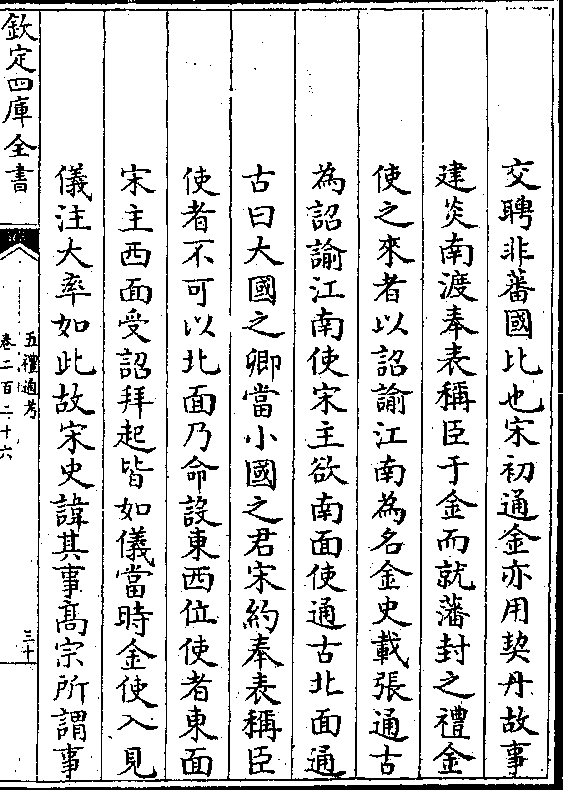 交聘非蕃國比也宋初通金亦用契丹故事
建炎南渡奉表稱臣于金而就藩封之禮金
使之來者以詔諭江南為名金史載張通古
為詔諭江南使宋主欲南面使通古北面通
古曰大國之卿當小國之君宋約奉表稱臣
使者不可以北面乃命設東西位使者東面
宋主西面受詔拜起皆如儀當時金使入見
儀注大率如此故宋史諱其事髙宗所謂事
欽定四庫全書
五禮通考
卷二百二十六
三十